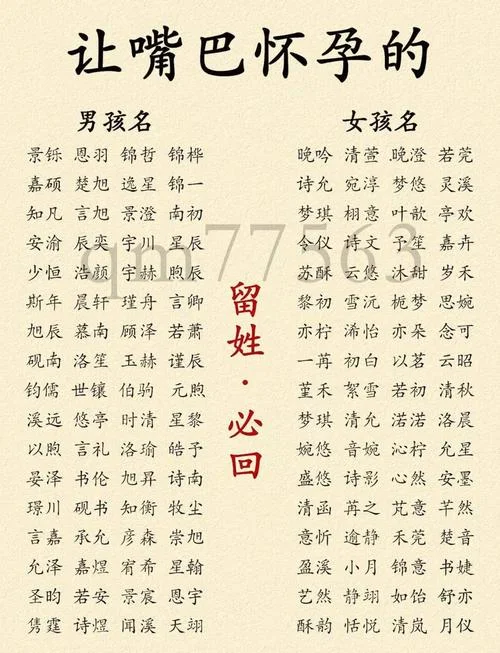 让嘴巴怀孕的
男孩名
景铄 恩羽 锦哲 锦桦
嘉硕 楚旭 逸星 锦一
知凡 言旭 景澄 南初
安渝 辰奕 宇川 星辰
少恒 浩颜 宇赫 煦辰
斯年 晨轩 瑾舟 言卿
旭辰 慕南 顾泽 若萧
砚南 洛笙 玉赫 谨辰
钧儒 世镶 伯驹 元煦
溪远 悠亭 时清 星黎
以煦 言礼 洛瑜 皓予
晏泽 书伦 旭昇 诗南
璟川 砚书 知衡 牧尘
言嘉 承允 彦森 崇旭
允泽 嘉煜 宥希 星翰
圣昀 若安 景宸 恩宇
隽霆 诗煜 闻溪 天翊
女孩名
晚吟 清萱 晚澄 若莞
诗允 宛淳 梦悠 灵溪
梦琪 栩意 叶歆 亭欢
令仪 诗文 予笙 嘉卉
苏酥 云悠 沐甜 岁禾
黎初 雪沅 栀梦 思婉
亦柠 浠怡 亦朵 念可
一苒 初白 以茗 云昭
堇禾 絮雪 若初 清秋
梦琪 清允 渃渃 洛晨
婉悠 音婉 沁柠 允星
盛悠 诗影 心然 安墨
清函 苒之 芃意 芊然
意忻 逾静 禾莞 楚音
盈溪 小月 锦意 书婕
艺然 静翊 如怡 舒亦
酥韵 恬悦 清岚 月仪
留姓·必回
qm77563